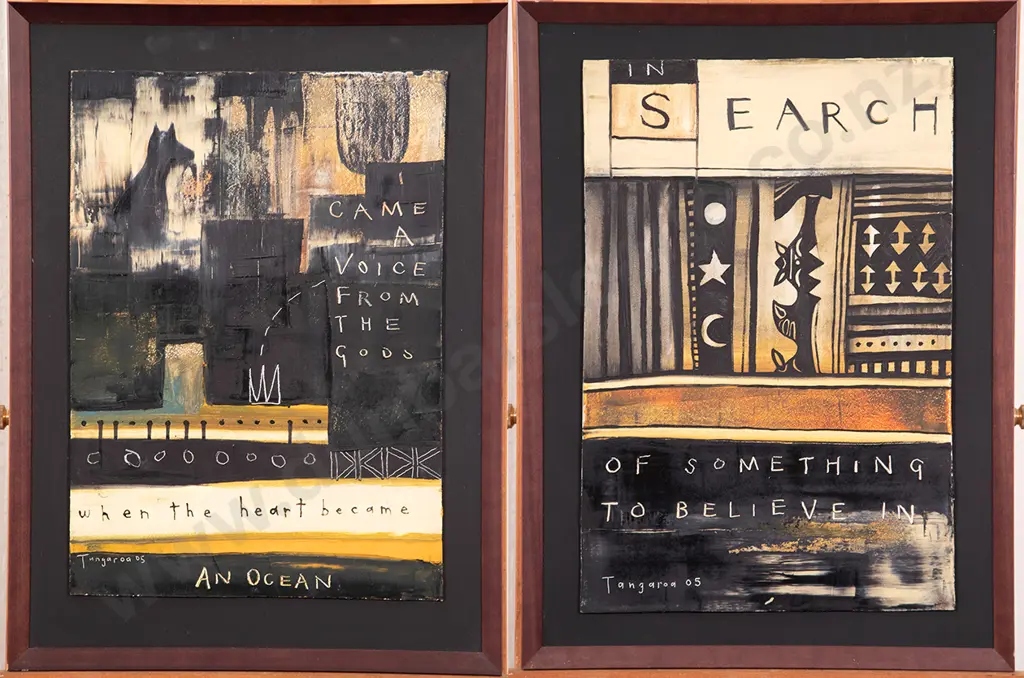 I
CAME
A
VOICE
FROM
THE
GODS
when the heart became
Tangaroa 05
AN OCEAN
IN
S EARCH
OF SOMETHING
TO BELIEVE IN
Tangaroa 05